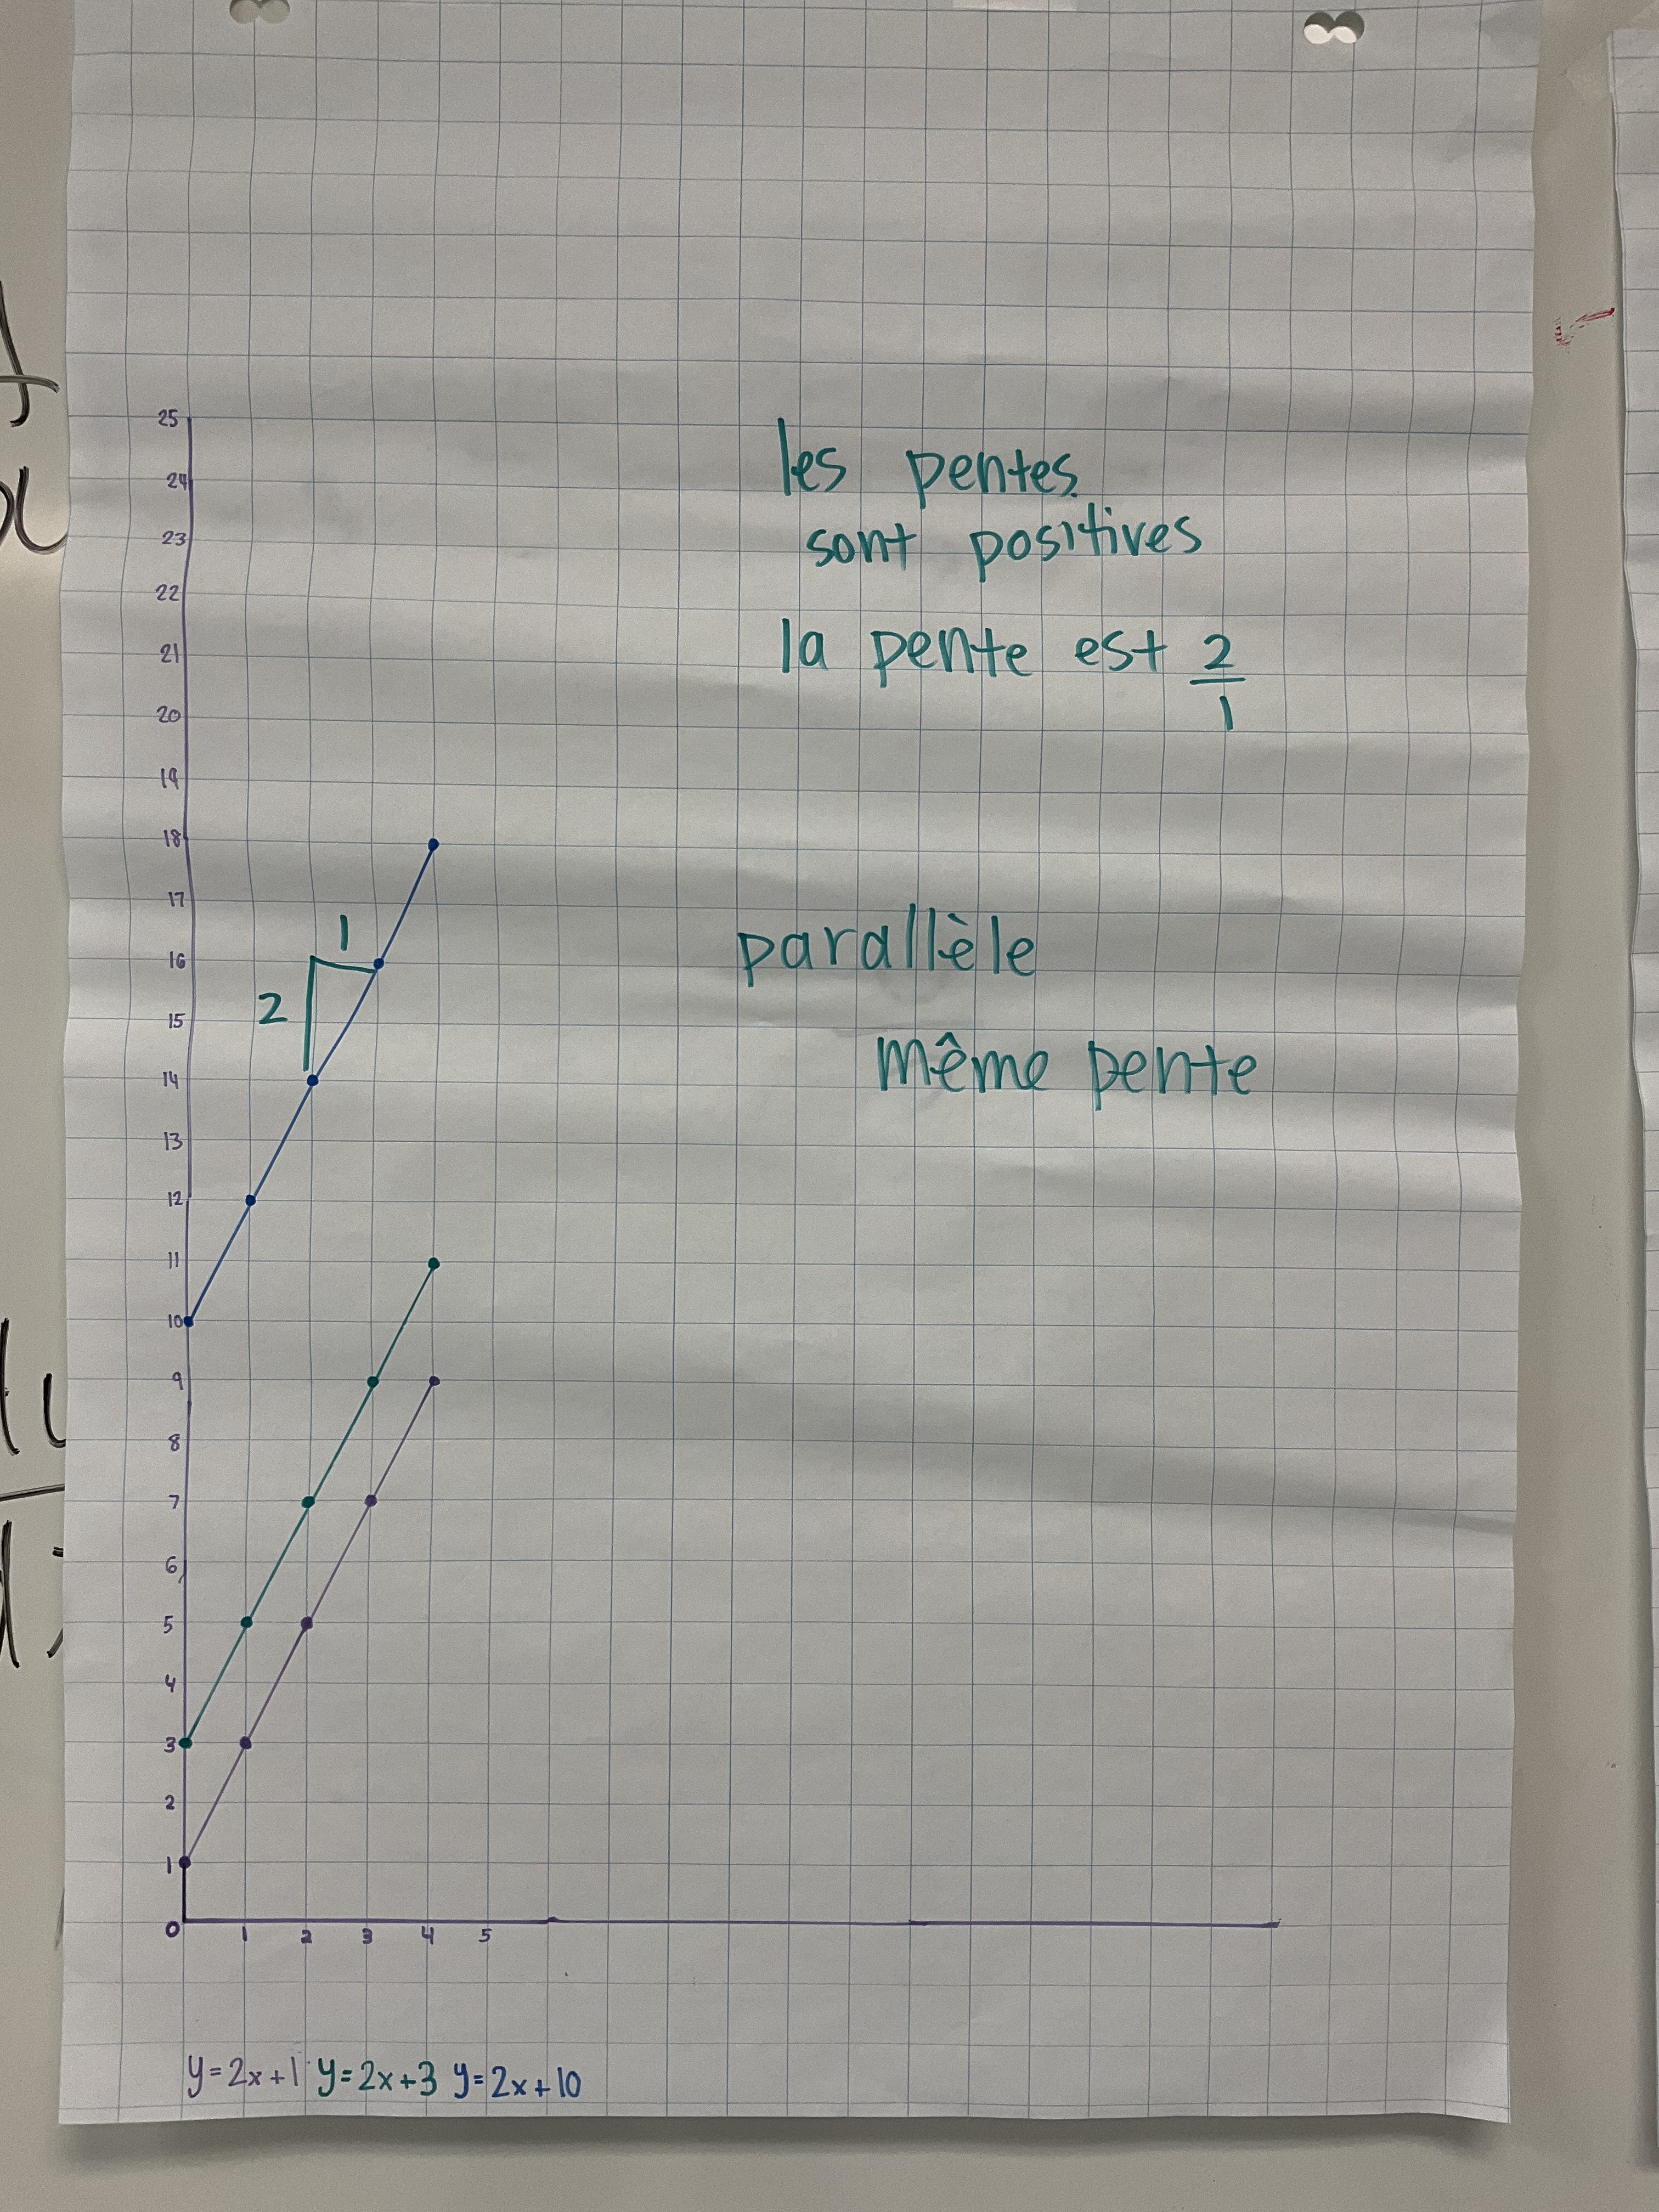 25
24
23
22
21
20
19
18
17
16
15
14
13
12
11
10
9
8
7
6
5
4
3
2
1
0
1 2 3 4 5
les pentes
sont positives
la pente est 2
1
1
2
parallèle
même pente
y=2x+1 y=2x+3 y=2x+10